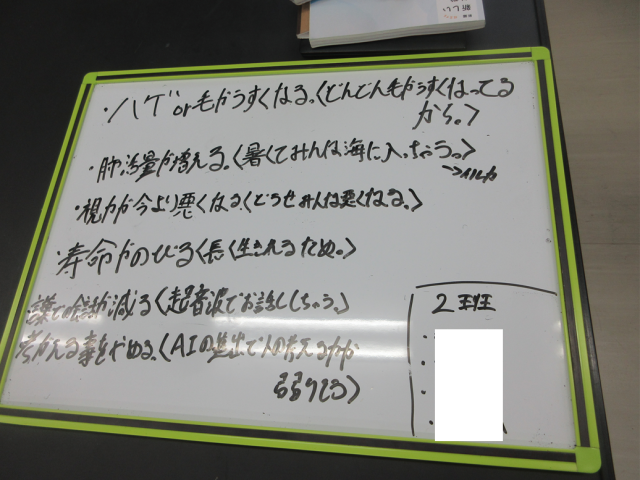 新しい
・ハゲor毛がうすくなる。〈どんどん毛がうすくなってる
から。〉
・肺活量が増える。〈暑くてみんな海に入っちゃう。〉
→イルカ
・視力が今より悪くなる〈どうせみんな悪くなる。〉
・寿命がのびる〈長く生きれるため。〉
会話が減る〈超音波でお話ししちゃう。〉
考える事をやめる。〈AIの進出で人の考える力が
弱ってる〉
2班